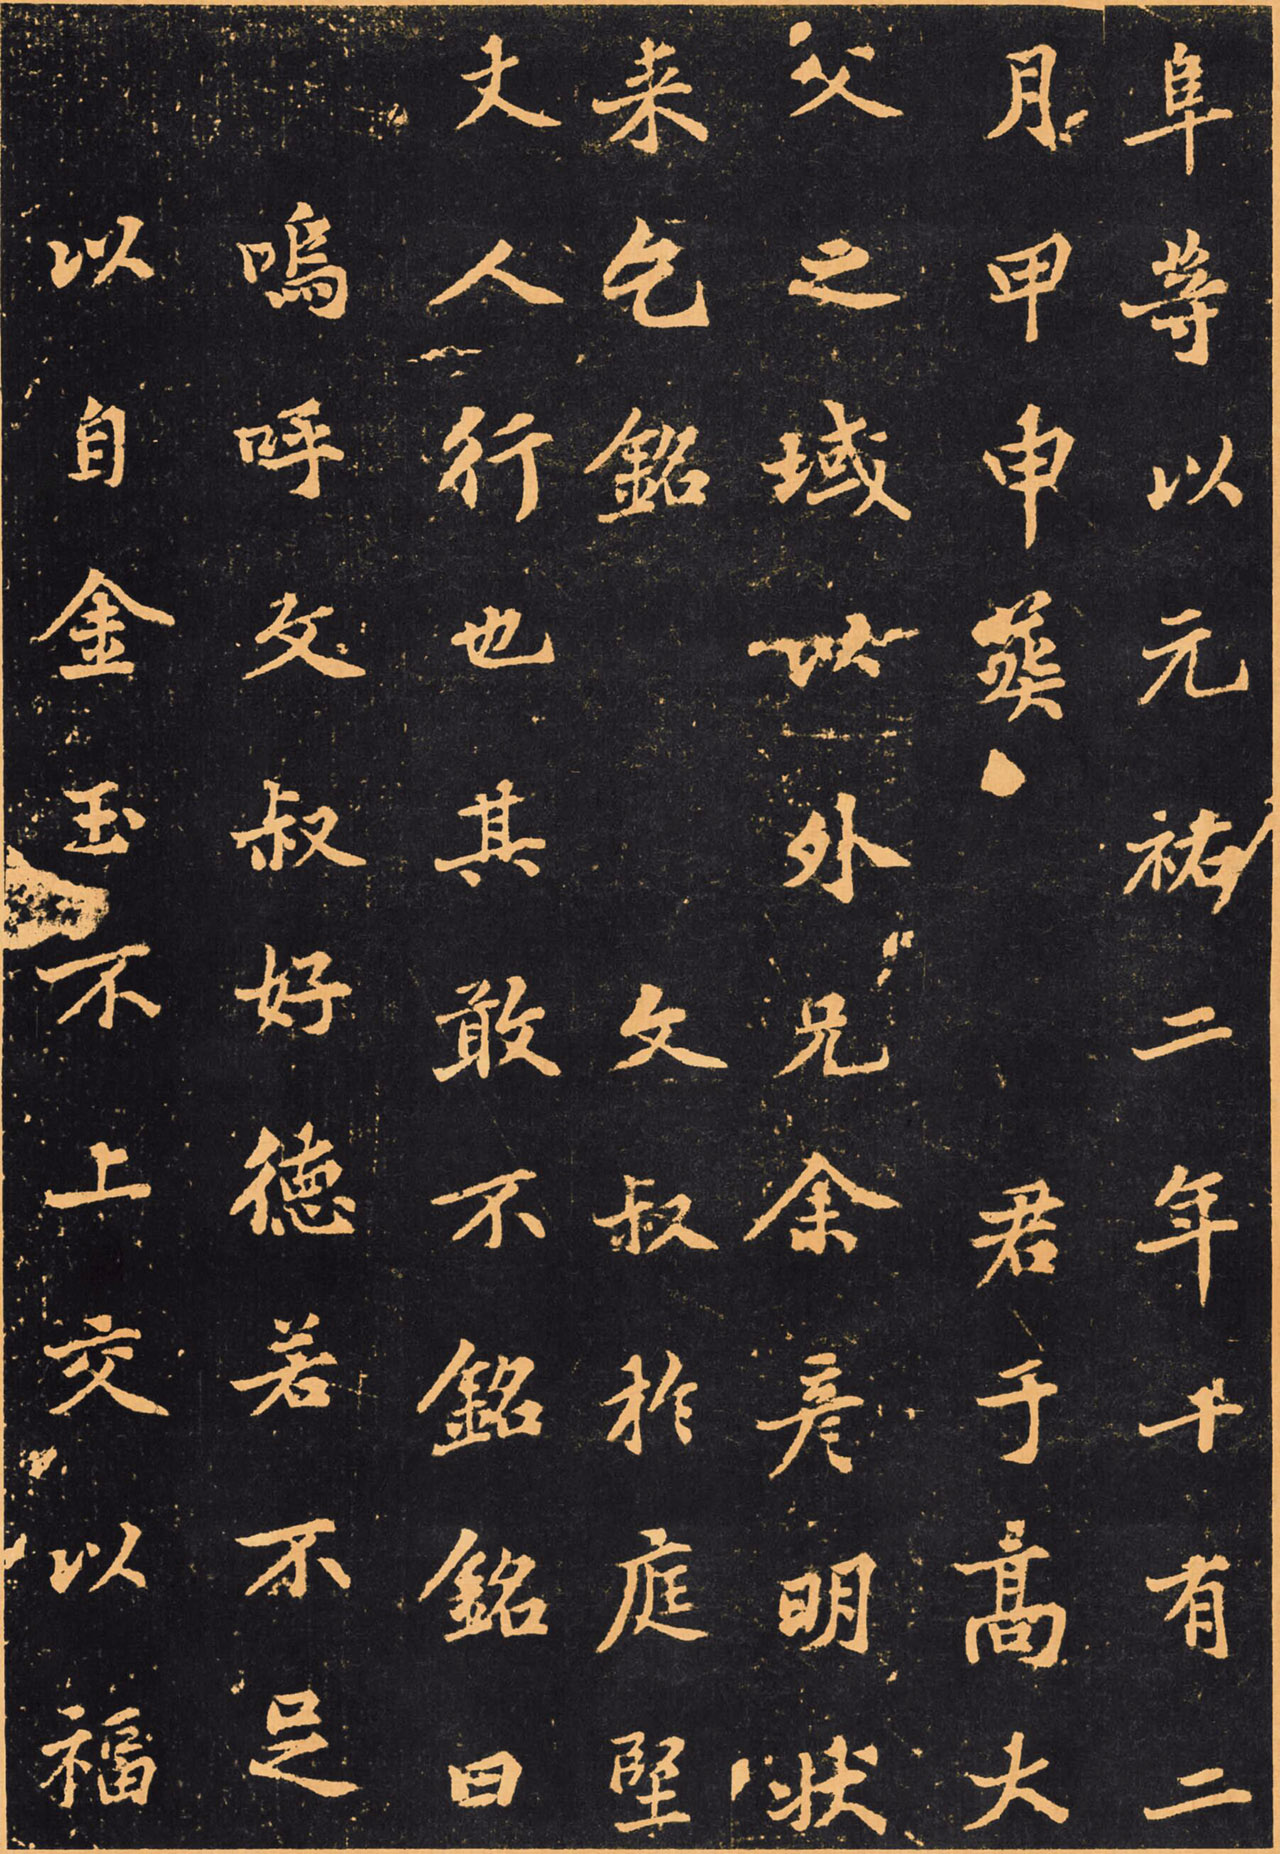 阜等以元祐二年十有二
月甲申葬君于高大
父之域以外兄余彦明状
来乞銘文叔於庭堅
丈人行也其敢不銘銘曰
嗚呼文叔好德若不足
以自金玉不上交以福